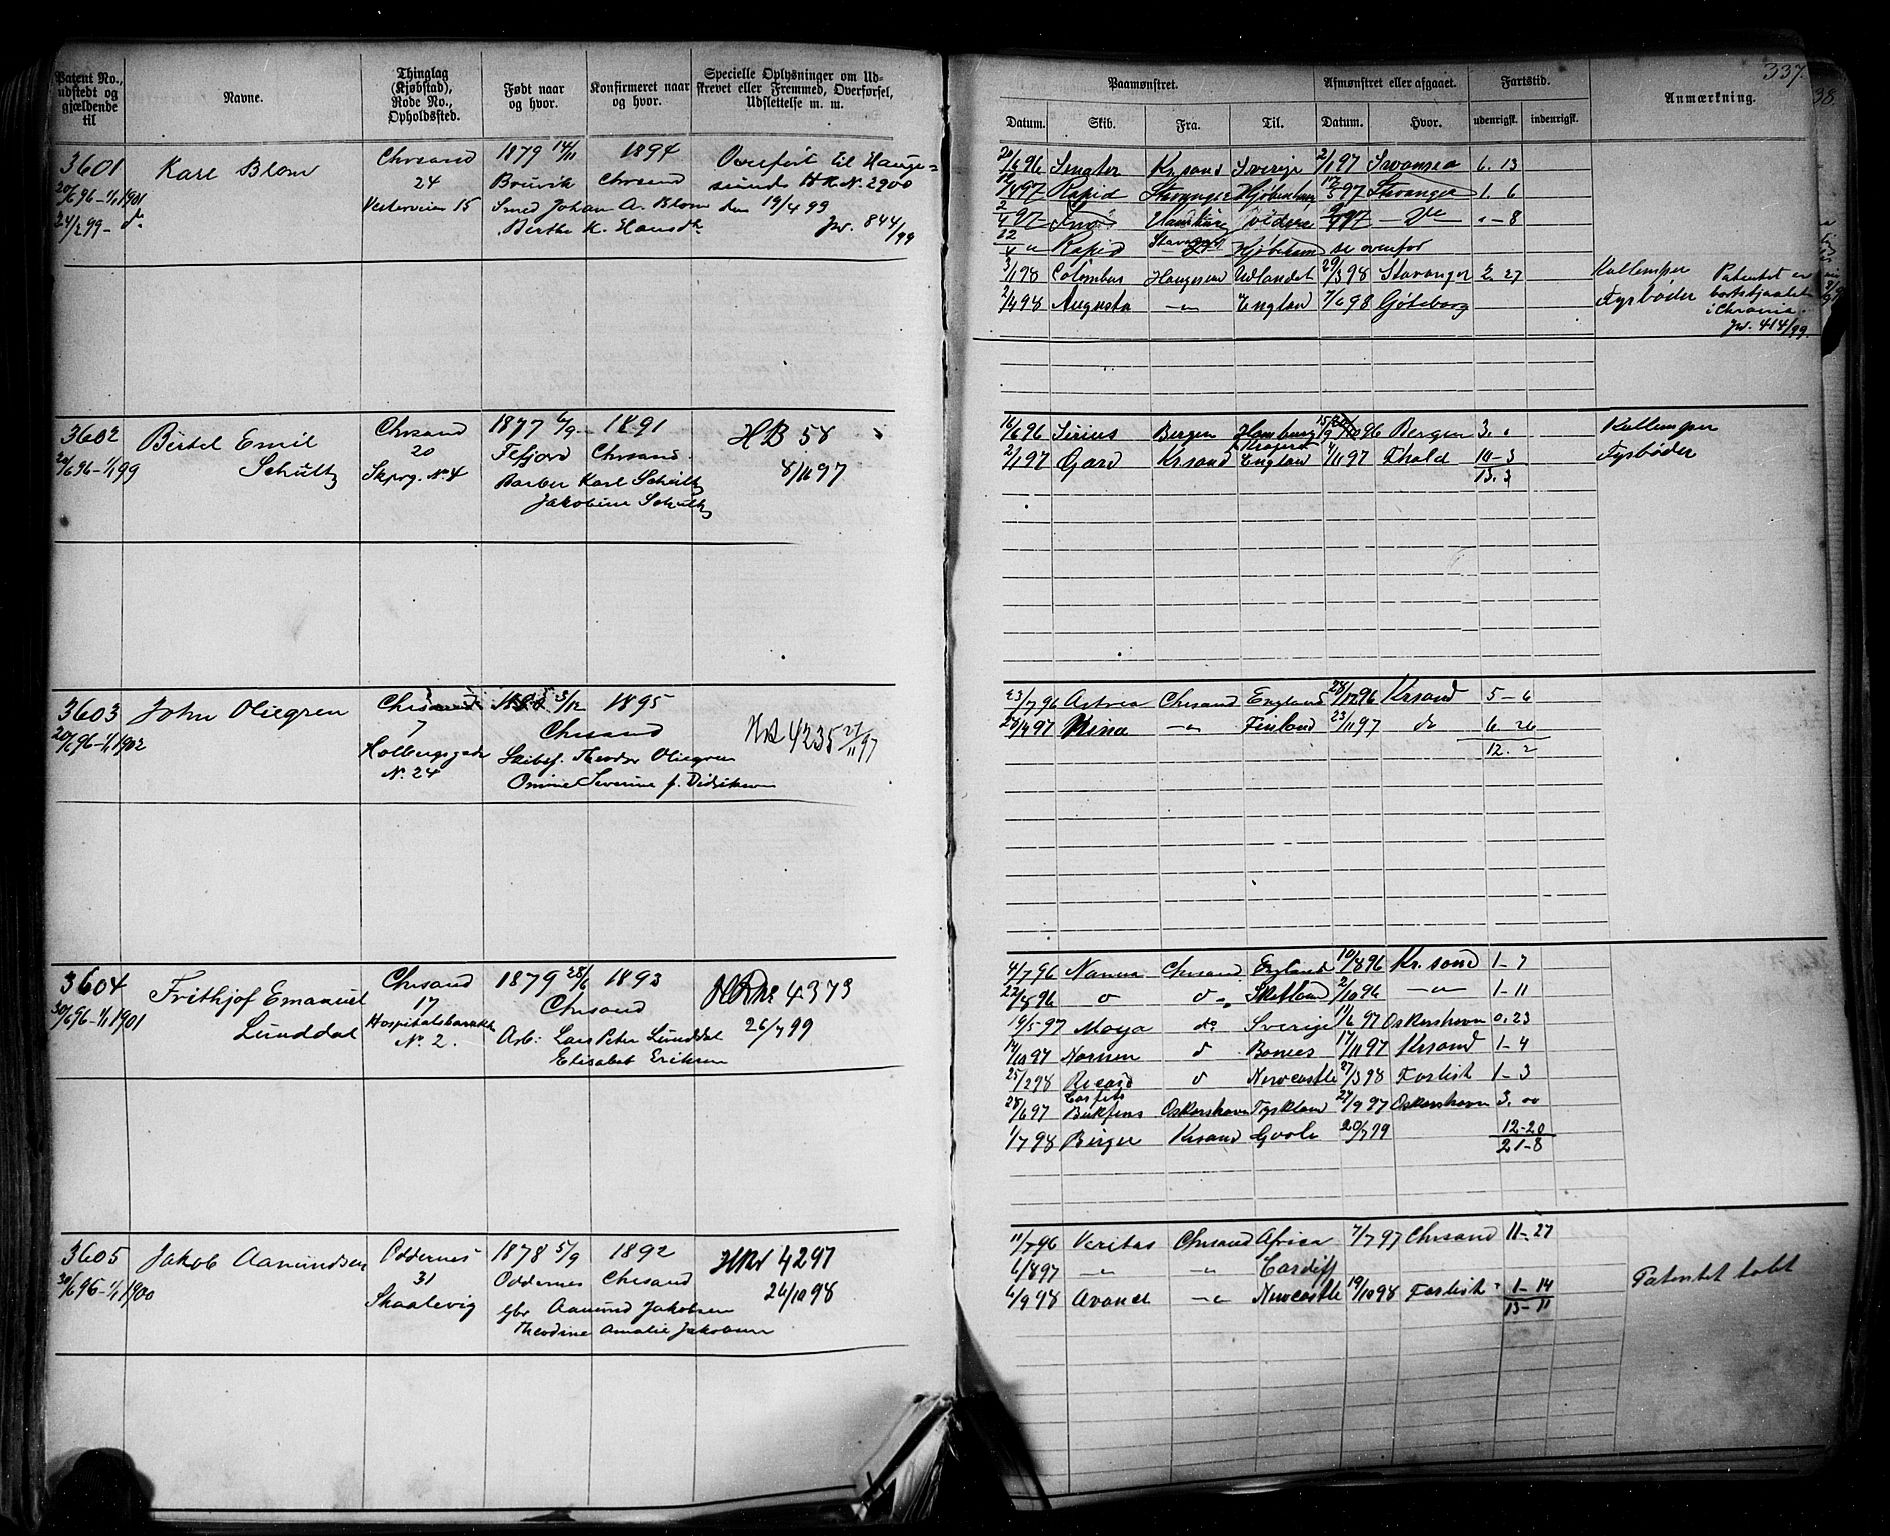 337.
38.
Patent No., udstedt og gjældende til
Navne.
Thinglag (Kjøbstad), Rode No., Opholdssted.
Født naar og hvor.
Konfirmeret naar og hvor.
Specielle Oplysninger om Udskrevet eller Fremmed, Overførsel, Udslettelse m. m.
Paamønstret.
Afmønstret eller afgaaet.
Fartstid.
Anmærkning.
Datum. Skib. Fra. Til. Datum. Hvor. udenrigsk. indenrigsk.
3601 Karl Blom Chrsand 1879 14/11 1894 Overført til Hauge-
20/6 96-1/1 1901 24 Bruvik Chrsand sunds HR N. 2900
24/2 99- do Vesterveien 15 Smed Johan A. Blom den 19/4 99
Birthe K. Hansdr. Jv. 844/99
20/6 96 Senator Krsand Sverige 2/1 97 Swansea 6. 13
97 Rapid Stavanger Kjøbenhavn 97 Stavanger 1. 6
97 97 - 8
Rapid Kjøbenhavn se ovenfor
3/1 98 Columbus Haugesun Udlandet 29/3 98 Stavanger 2. 27
2/4 98 Augusta -"- England 7/6 98 Gøteborg
Kullemper
Fyrbøder
Patentet er
bortskjaalet
i Chrania.
Jv. 414/99.
3602 Bertel Emil Chrsand 1877 6/9 1891 HB 58
20/6 96-1/1 99 Schultz 20 Fefjord Chrsand. 8/11 97
Skprg. No. 4 Barber Karl Schultz
Jakobine Schultz
16/6 96 Sirius Bergen Hamburg 96 Bergen 3.
2/1 97 Gard Krsand England 1/11 97 Fhald 10-3
13. 3
Kullemper
Fyrbøder
3603 John Oliegren Chrsand 3/12 1895
20/6 96-1/1 1902 7 Chrsand 4235 27/11 97
Holbergsgade Skibsf. Theodor Oliegren
N. 24 Severine f. Didriksen
23/7 96 Astrea Chrsand England 28/12 96 Krsand 5-6
97 -"- Finland 23/11 97 do 6. 26
12. 2
3604 Frithjof Emanuel Chrsand 1879 28/6 1893 HRNr 4373
30/6 96-1/1 1901 Lunddal 17 Chrsand 26/7 99
Hospitalsbarakk Arb: Lars Peter Lunddal
No. 2. Elisabet Eriksen
4/7 96 Nanna Chrsand England 10/8 96 Kr.sand 1-7
22/8 96 do do Sketland 2/10 96 -"- 1-11
19/5 97 Moya do Sverige 11/6 97 Oskarshavn 0. 23
14/10 97 Nornen do Boness 17/11 97 Krsand 1-4
25/2 98 Ricard do Newcastle 27/3 98 Forlist 1-3
28/6 97 Oskarshavn Tysklan 27/9 97 Oskarshavn 3. 00
1/7 98 Birger Krsand Goole 20/7 99 12-20
21-8
3605 Jakob Aamundsen Oddernes 1878 5/9 1892 HRNr 4297
30/6 96-1/1 1900 31 Oddernes Chrsand 26/10 98
Skaalevig Gbr Aamund Jakobsen
Theodine Amalie Jakobsen
11/7 96 Veritas Chrsand Africa 7/7 97 Chrsand 11-27
6/8 97 -"- -"- Cardiff
6/9 98 Avance -"- Newcastle 19/10 98 Forlist 1-14
13-11
Patentet tabt